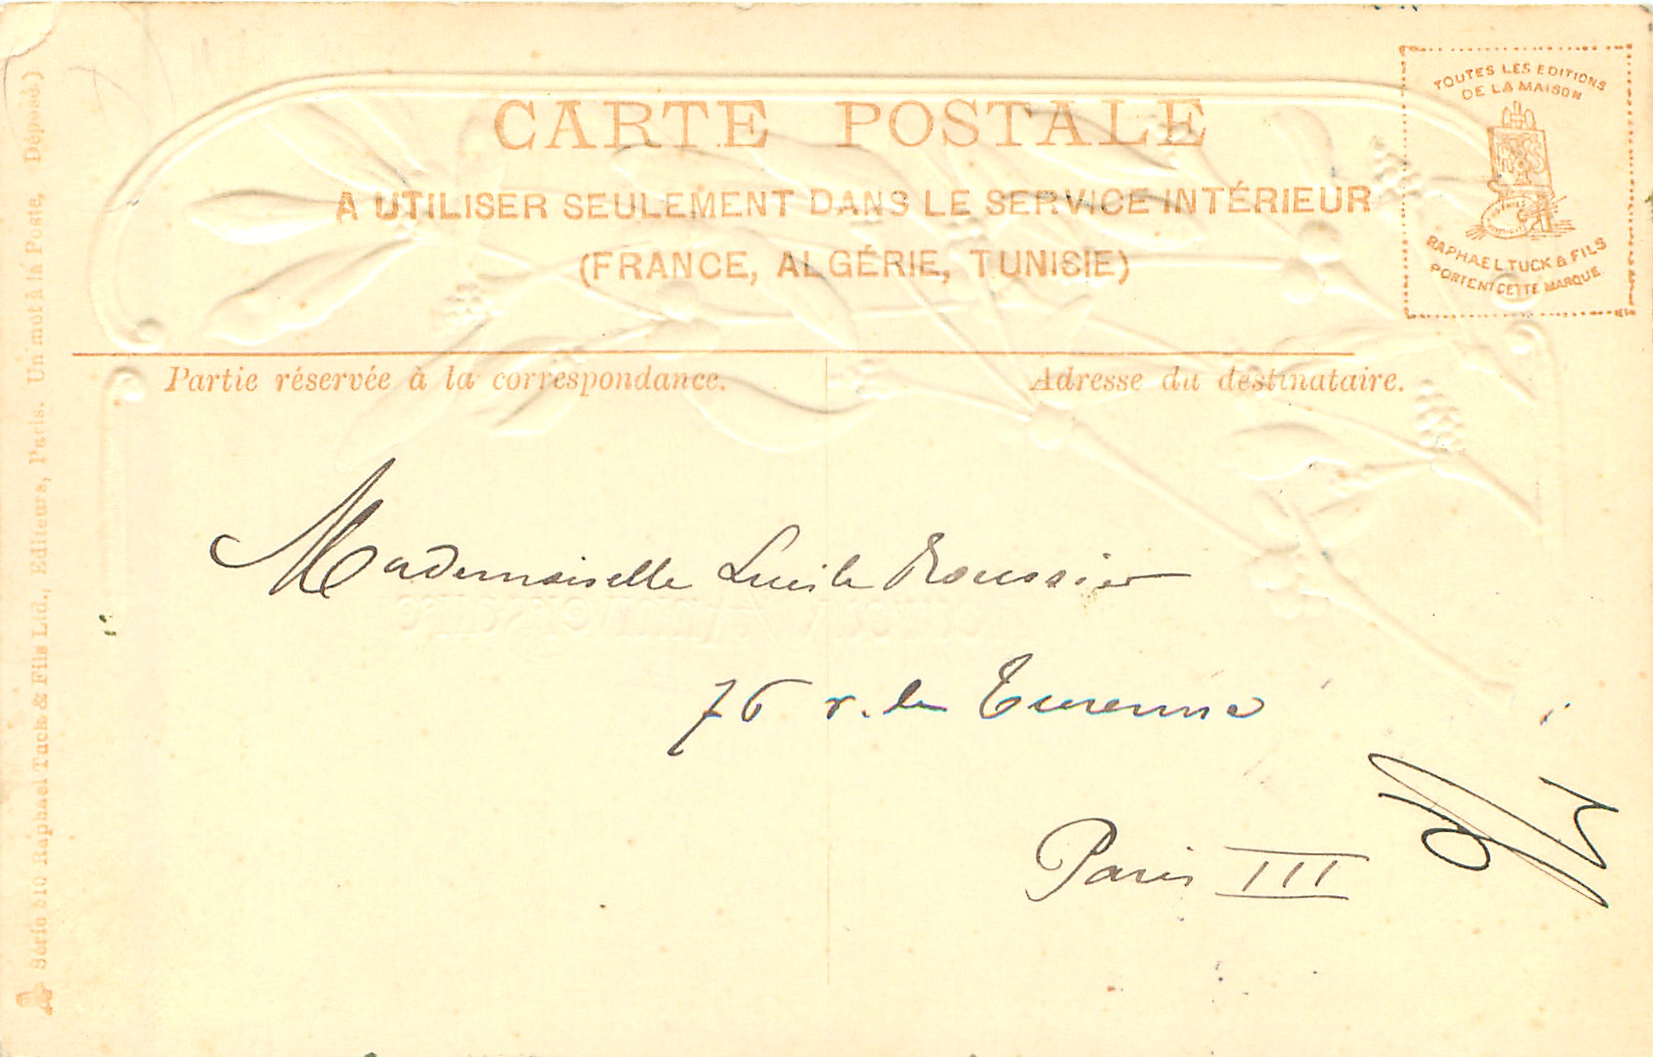 CARTE POSTALE
A UTILISER SEULEMENT DANS LE SERVICE INTÉRIEUR
(FRANCE, ALGÉRIE, TUNISIE)
TOUTES LES EDITIONS
DE LA MAISON
RAPHAEL TUCK & FILS
PORTENT CETTE MARQUE
Partie réservée à la correspondance.
Adresse du destinataire.
Mademoiselle Lucile Roussier
76 r. de Turenne
Paris III
Série 510 Raphael Tuck & Fils Ltd., Editeurs, Paris. Un mot à la Poste, (Déposé.)